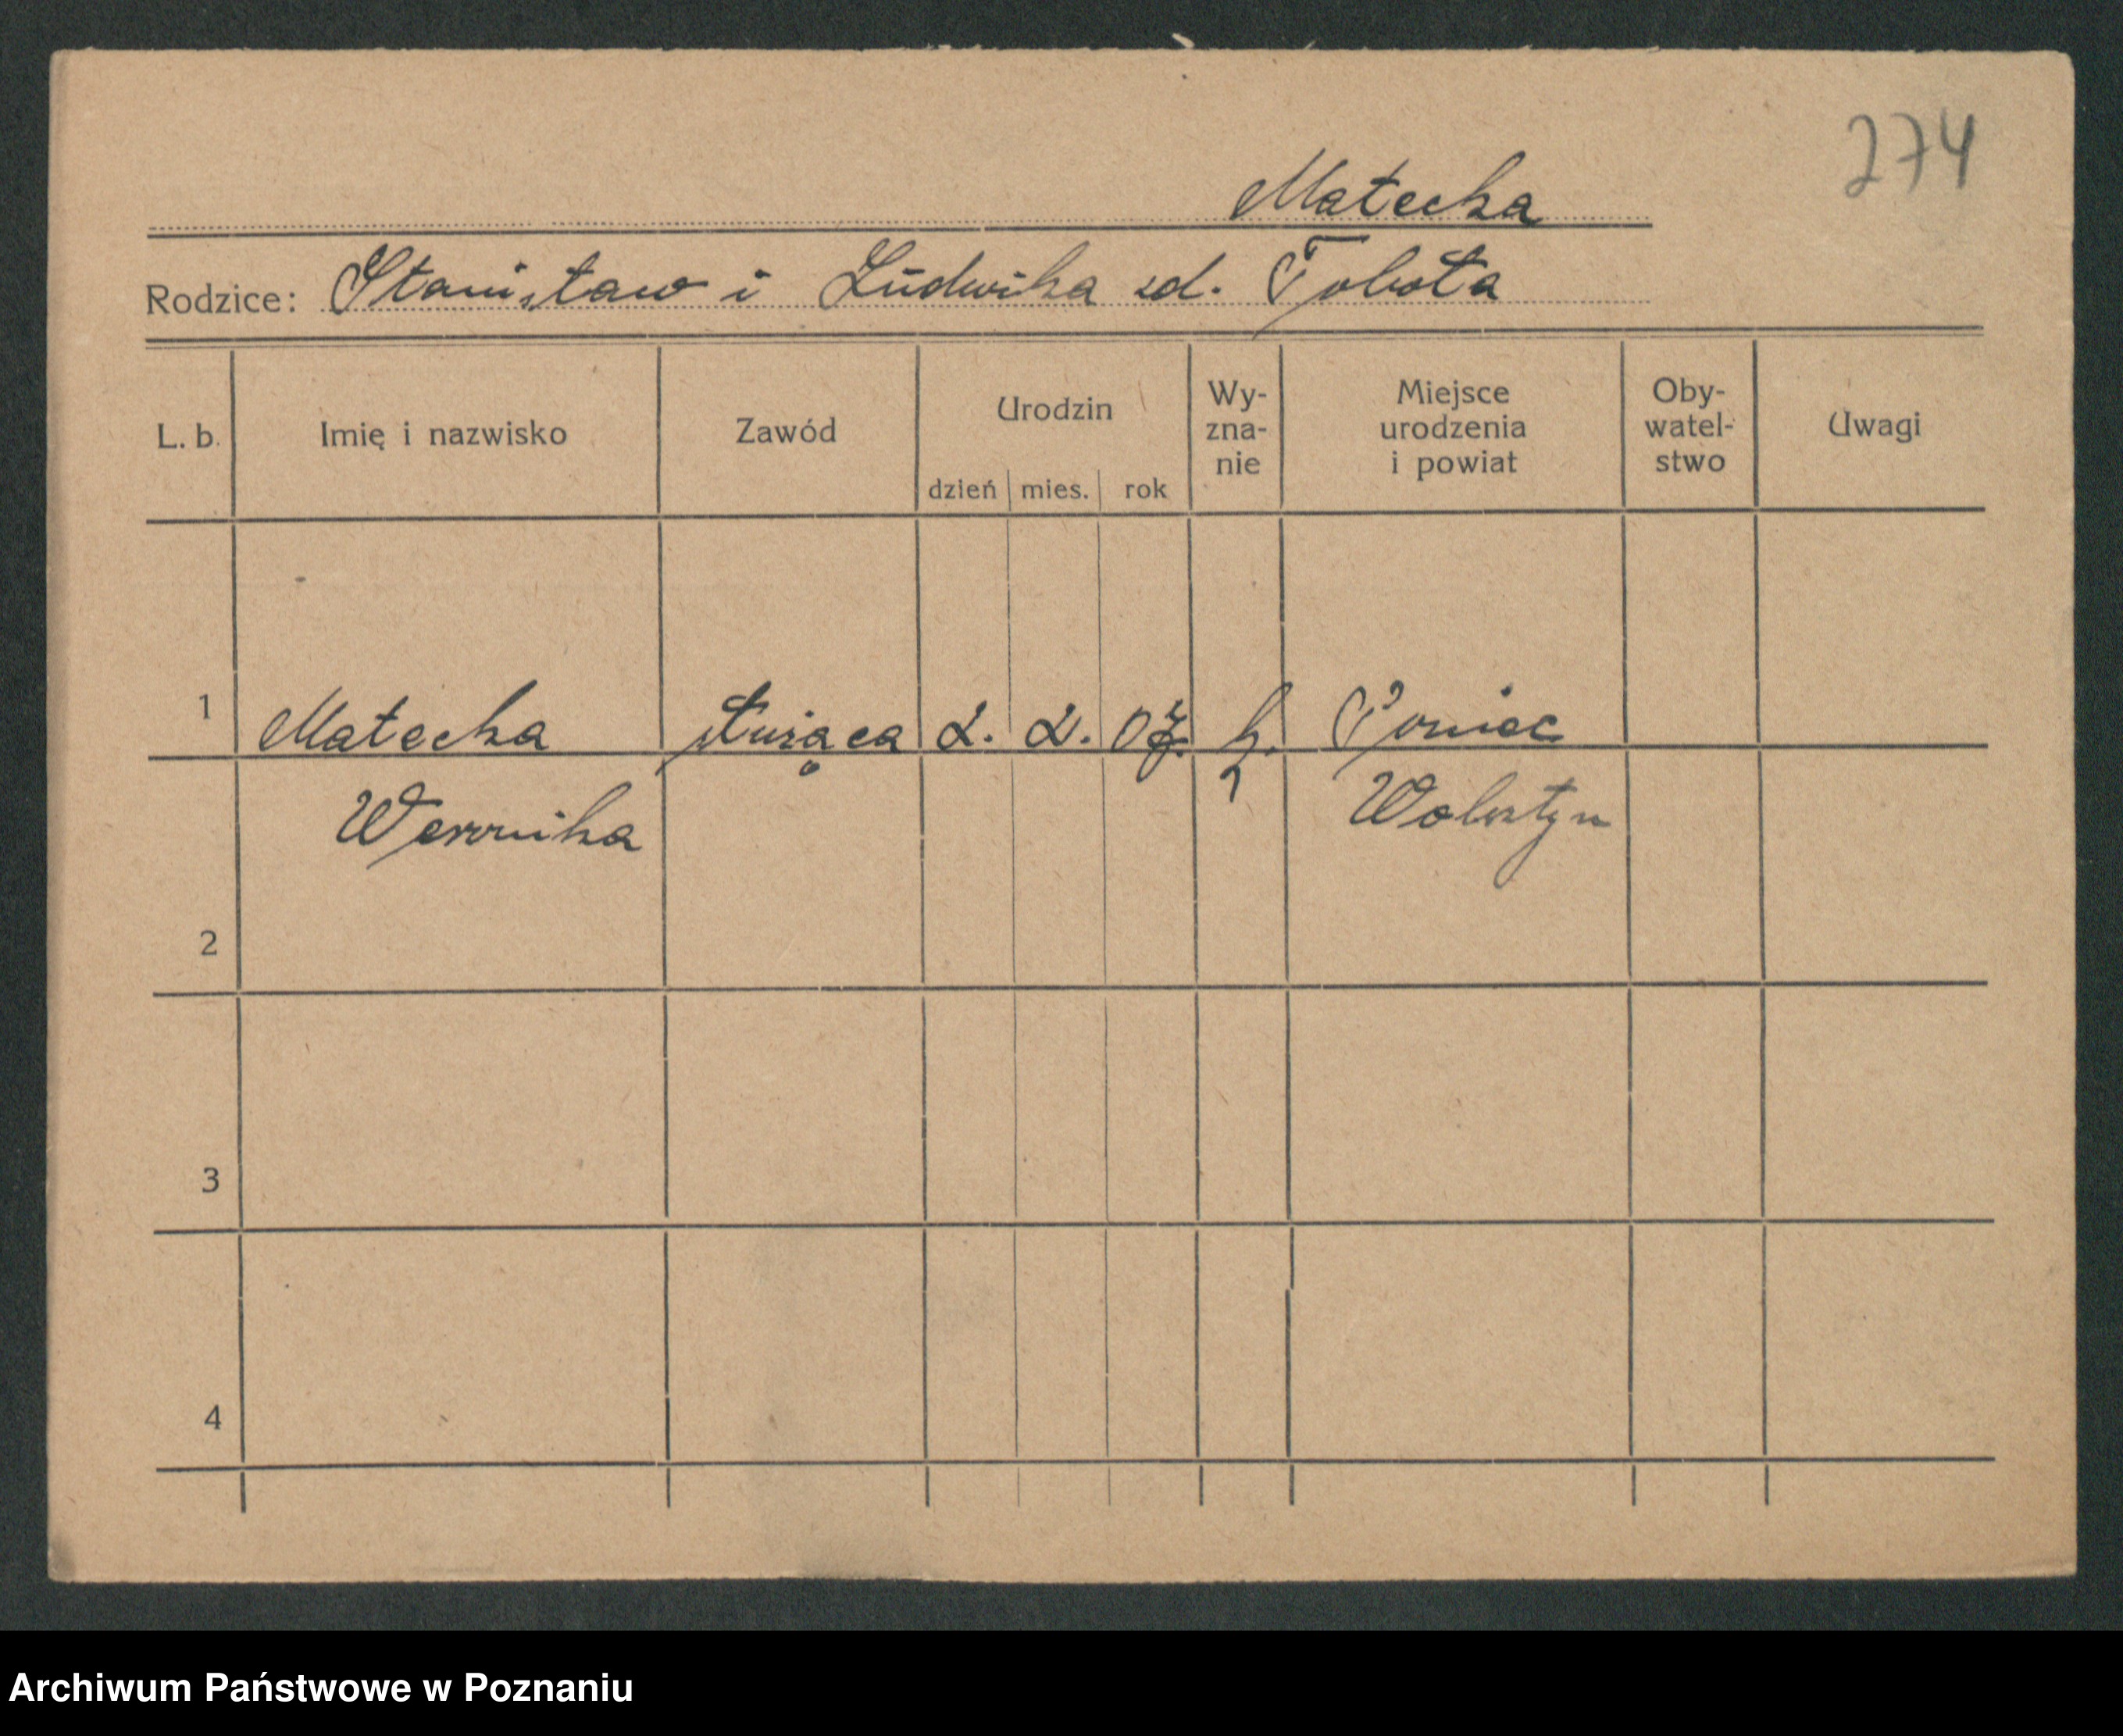 274
Małecka
Rodzice: Stanisław i Ludwika zd. Toboła
L. b. Imię i nazwisko Zawód Urodzin dzień mies. rok Wy-zna-nie Miejsce urodzenia i powiat Oby-watel-stwo Uwagi
1 Małecka służąca 2. 2. 07. k. Poniec
Weronika Wolsztyn
2
3
4
Archiwum Państwowe w Poznaniu